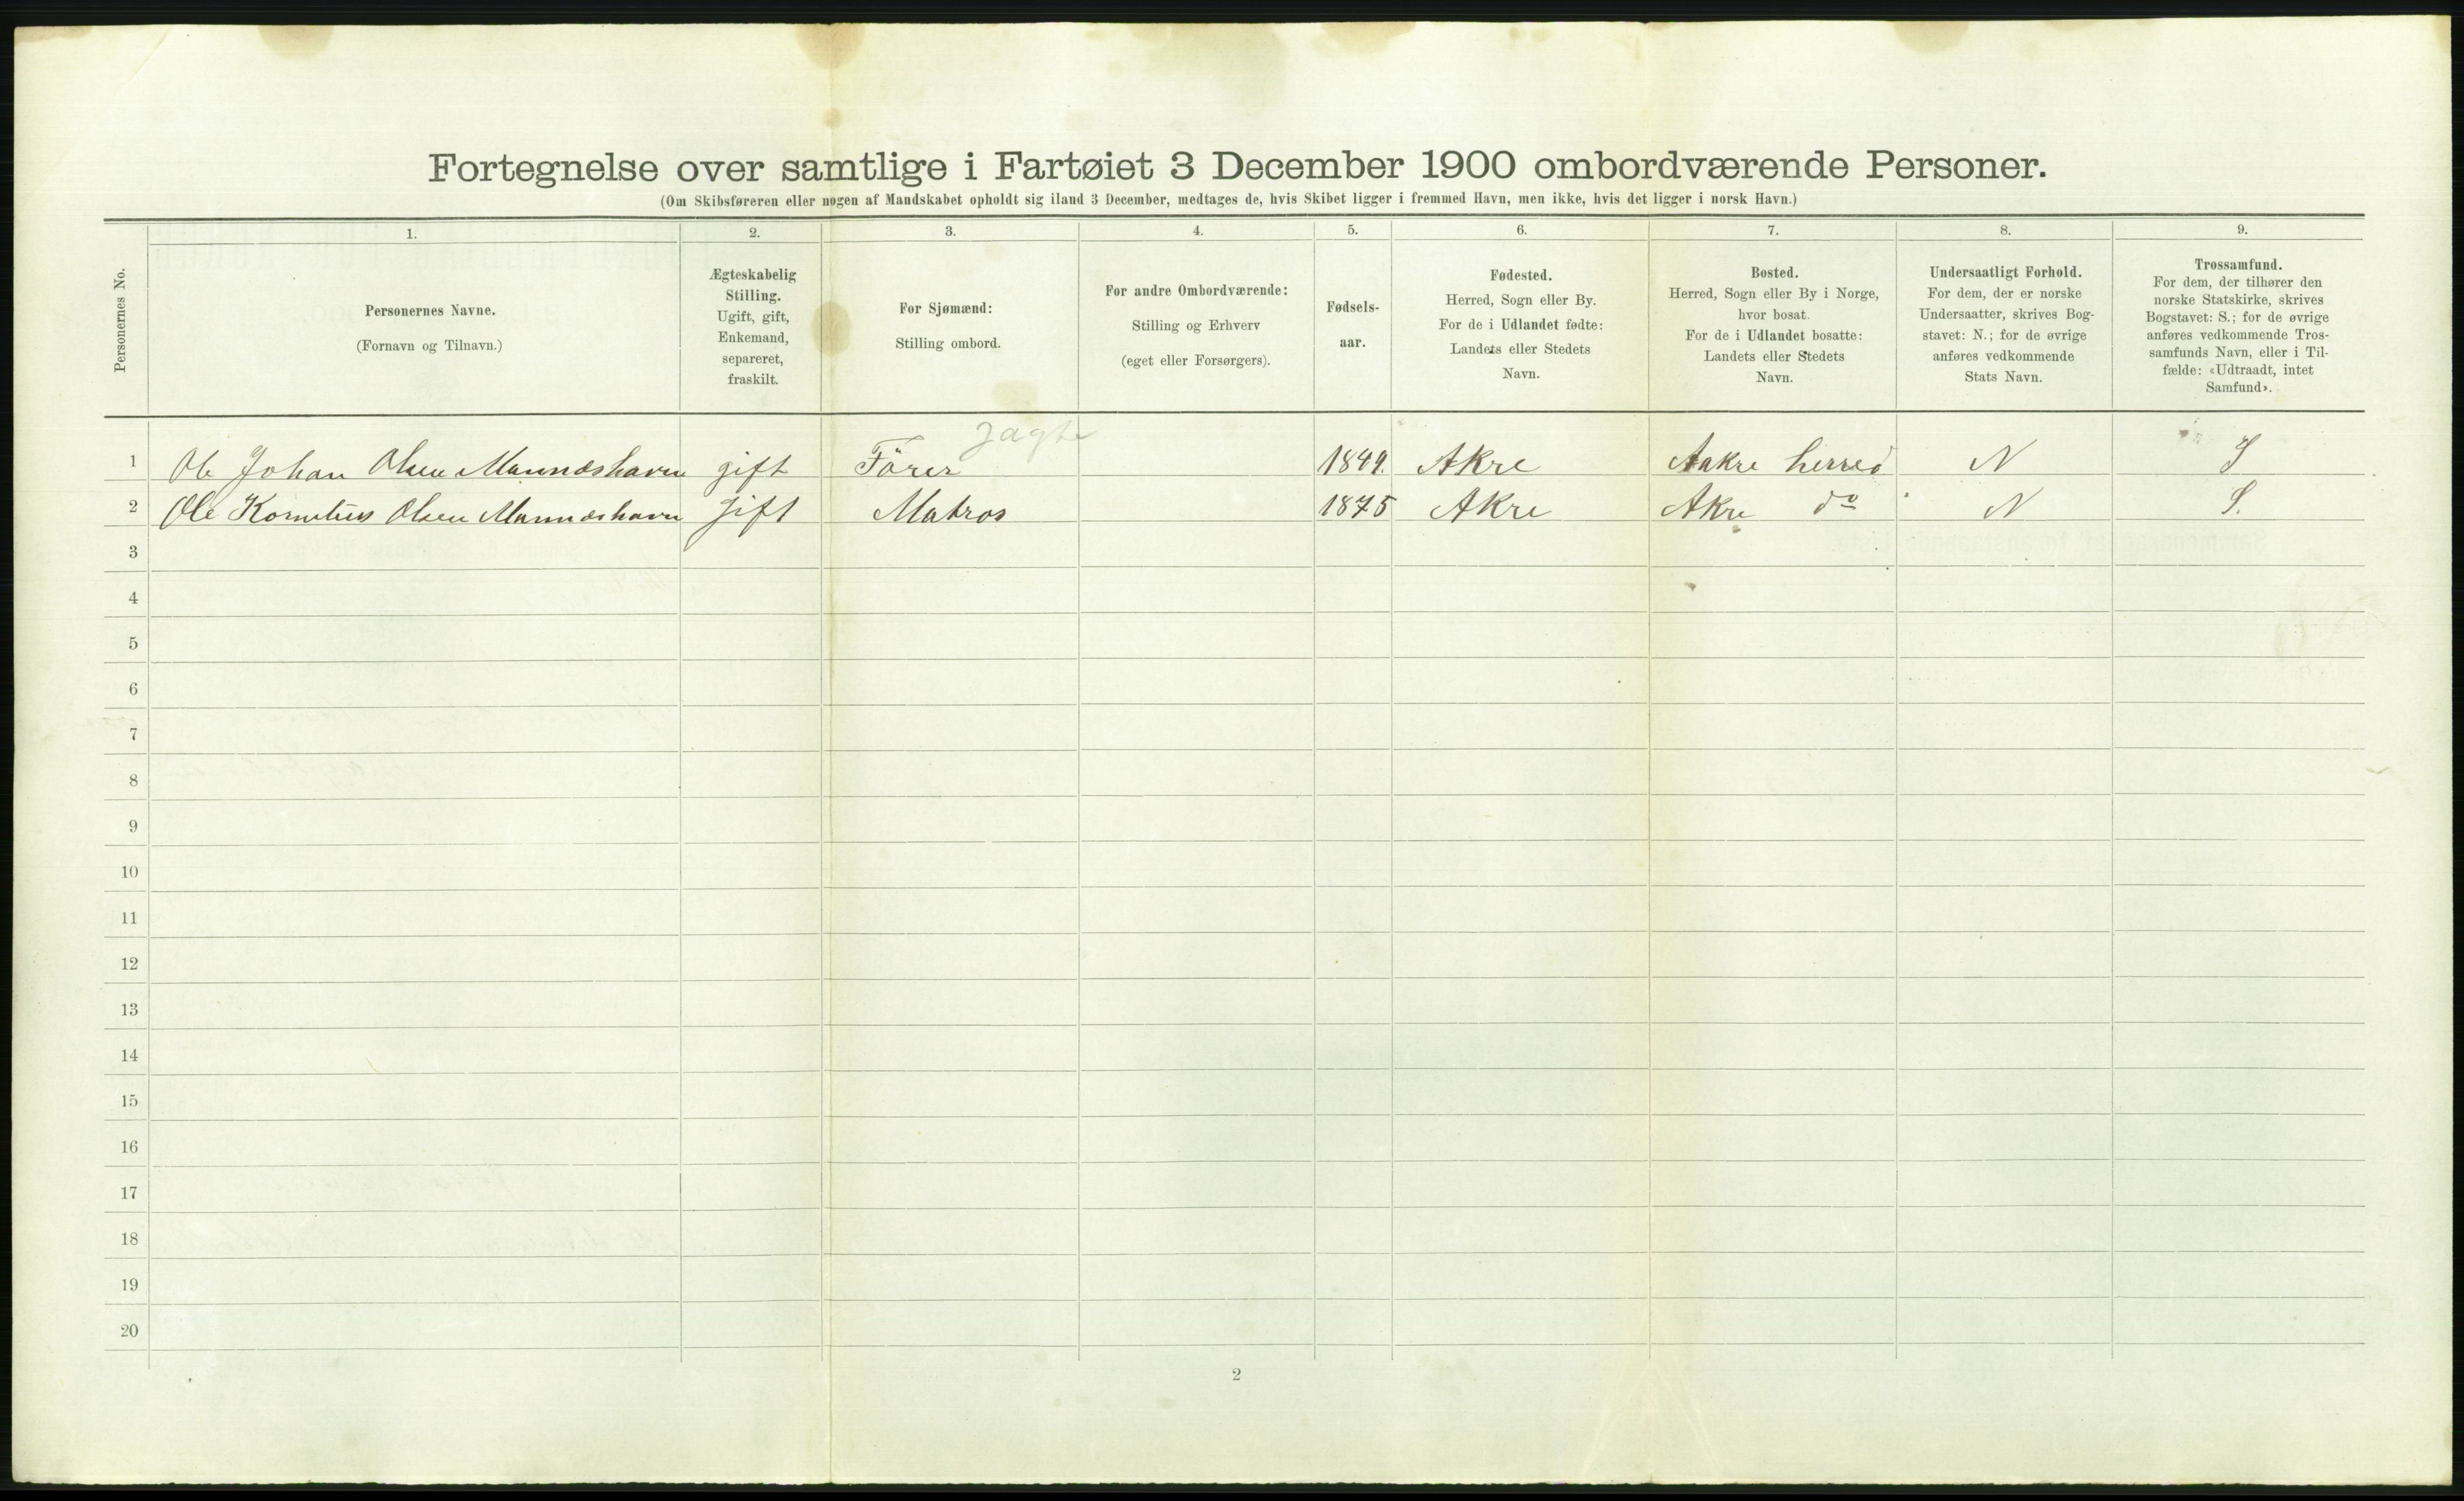 Fortegnelse over samtlige i Fartøiet 3 December 1900 ombordværende Personer.
(Om Skibsføreren eller nogen af Mandskabet opholdt sig iland 3 December, medtages de, hvis Skibet ligger i fremmed Havn, men ikke, hvis det ligger i norsk Havn.)
Personernes No.
1.
Personernes Navne.
(Fornavn og Tilnavn.)
2.
Ægteskabelig
Stilling.
Ugift, gift,
Enkemand,
separeret,
fraskilt.
3.
For Sjømænd:
Stilling ombord.
4.
For andre Ombordværende:
Stilling og Erhverv
(eget eller Forsørgers).
5.
Fødsels-
aar.
6.
Fødested.
Herred, Sogn eller By.
For de i Udlandet fødte:
Landets eller Stedets
Navn.
7.
Bosted.
Herred, Sogn eller By i Norge,
hvor bosat.
For de i Udlandet bosatte:
Landets eller Stedets
Navn.
8.
Undersaatligt Forhold.
For dem, der er norske
Undersaatter, skrives Bog-
stavet: N.; for de øvrige
anføres vedkommende
Stats Navn.
9.
Trossamfund.
For dem, der tilhører den
norske Statskirke, skrives
Bogstavet: S.; for de øvrige
anføres vedkommende Tros-
samfunds Navn, eller i Til-
fælde: «Udtraadt, intet
Samfund».
Jagt
1 Ole Johan Olsen Mannæshavn gift Förer 1849. Akre Aakre herred N S
2 Ole Kornelius Olsen Mannæshavn gift Matros 1875 Akre Akre do N S.
3
4
5
6
7
8
9
10
11
12
13
14
15
16
17
18
19
20
2